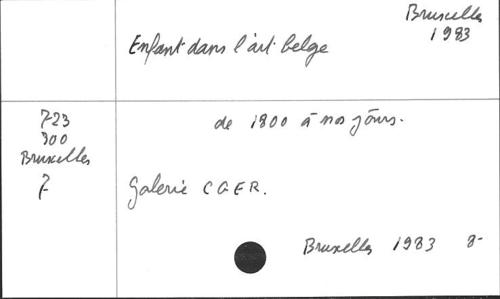 Bruxelles
1983
Enfant dans l'art belge
723
300
Bruxelles
7
de 1800 à nos jours.
Galerie CGER.
Bruxelles 1983 8-